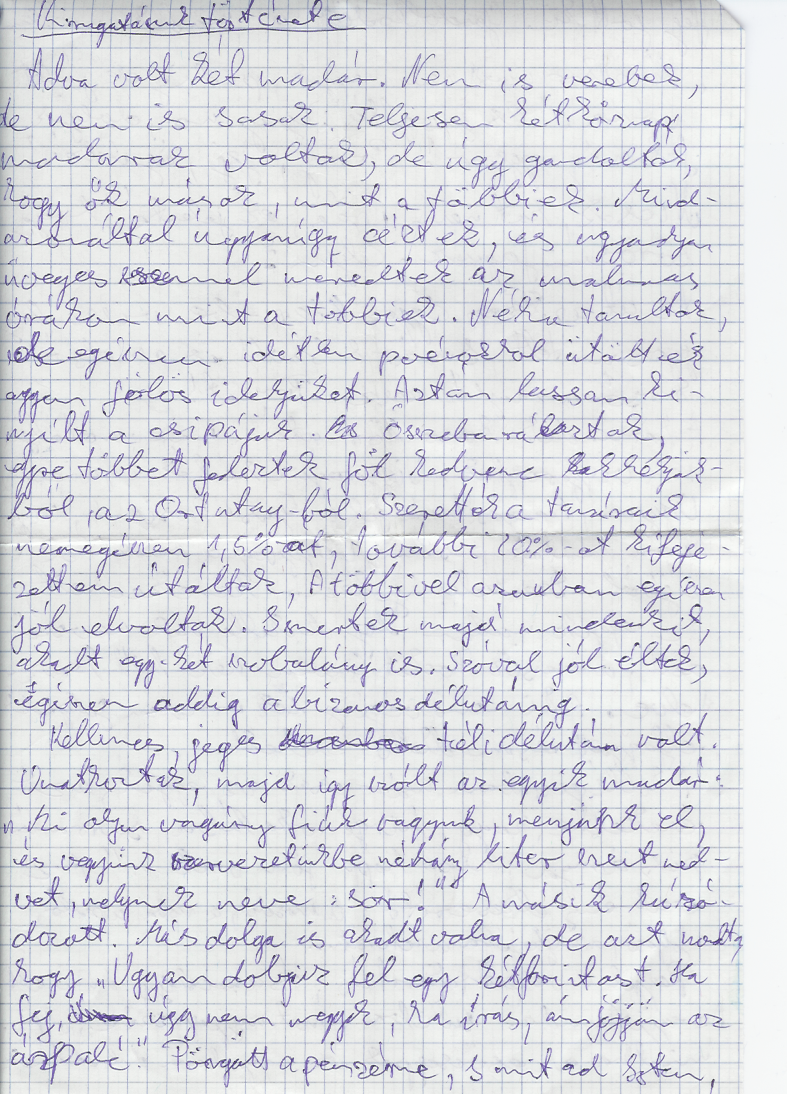 Kirúgatásunk története
Adva volt két madár. Nem is verebek,
de nem is sasok. Teljesen hétköznapi
madarak voltak, de úgy gondolták,
hogy ők mások, mint a többiek. Mind-
azonáltal ugyanúgy éltek, és ugyanolyan
üveges szemmel meredtek az unalmas
órákon mint a többiek. Néha tanultak,
de egészen idétlen poénokkal ütötték
agyon fölös idejüket. Aztán lassan ki-
nyílt a csipájuk. Összebarátkoztak,
egyre többet fedeztek föl kedvenc
ből, az Ortutay-ból. Szerették a tanáraik
nemegészen 1,5%-át, további 20%-ot kifeje-
zetten útáltak, A többivel azonban egészen
jól elvoltak. Ismertek majd mindenkit,
akadt egy-két is. Szóval jól éltek,
egészen addig a bizonyos délutánig.
Kellemes, jeges téli délután volt.
Unatkoztak, majd így szólt az egyik madár:
„Ki olyan vagány fiúk vagyunk, menjünk el,
és vegyünk szervezetünkbe néhány liter ned-
vet, melynek neve: sör!" A másik húzó-
dozott. Más dolga is akadt volna, de azt mondta
hogy „Ugyan dobjunk fel egy kétforintost. Ha
fej, úgy nem megyek, ha írás, ám jöjjön az
árpalé." Pörgött a pénzérme, s mit ad Isten,